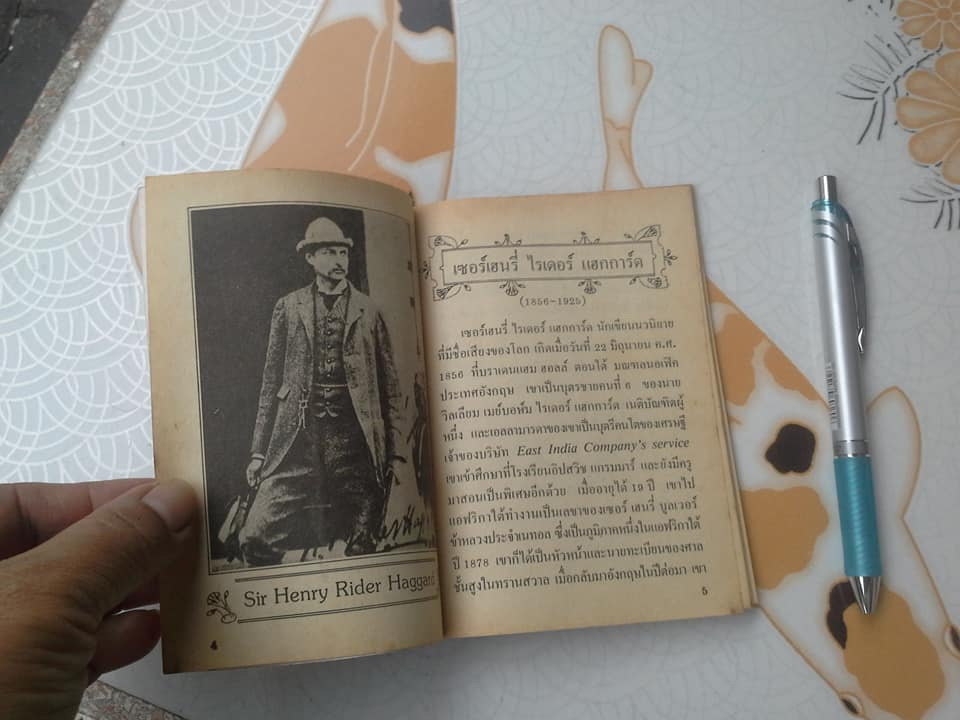 Sir Henry Rider Haggard
4
เซอร์เฮนรี่ ไรเดอร์ แฮกการ์ด
(1856-1925)
เซอร์เฮนรี่ ไรเดอร์ แฮกการ์ด นักเขียนนวนิยาย
ที่มีชื่อเสียงของโลก เกิดเมื่อวันที่ 22 มิถุนายน ค.ศ.
1856 ที่บราเดนแฮม ฮอลล์ ตอนใต้ มณฑลนอลเฟิค
ประเทศอังกฤษ เขาเป็นบุตรชายคนที่ 6 ของนาย
วิลเลียม เมย์บอห์ม ไรเดอร์ แฮกการ์ด เนติบัณฑิตผู้
หนึ่ง และเอลลามารดาของเขาเป็นบุตรีคนโตของเศรษฐี
เจ้าของบริษัท East India Company's service
เขาเข้าศึกษาที่โรงเรียนอิปสวิช แกรมมาร์ และยังมีครู
มาสอนเป็นพิเศษอีกด้วย เมื่ออายุได้ 19 ปี เขาไป
แอฟริกาได้ทำงานเป็นเลขาของเซอร์ เฮนรี่ บูลเวอร์
ข้าหลวงประจำเนทอล ซึ่งเป็นภูมิภาคหนึ่งในแอฟริกาใต้
ปี 1878 เขาก็ได้เป็นหัวหน้าและนายทะเบียนของศาล
ชั้นสูงในทรานสวาล เมื่อกลับมาอังกฤษในปีต่อมา เขา
5